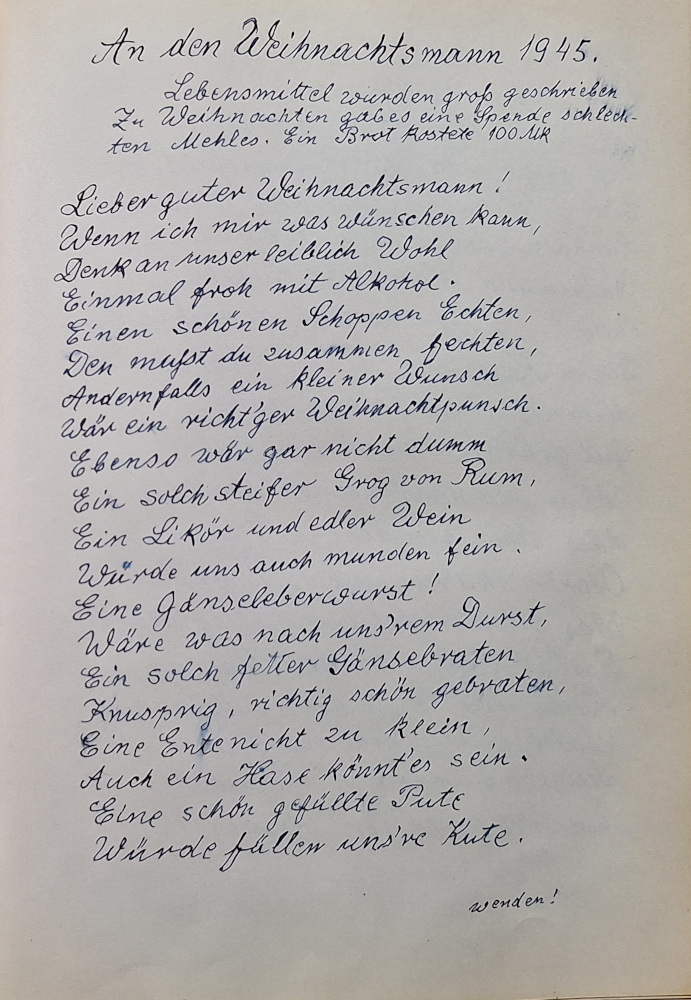 An den Weihnachtsmann 1945.
Lebensmittel wurden groß geschrieben
Zu Weihnachten gab es eine Spende schlech-
ten Mehles. Ein Brot kostete 100 Mk
Lieber guter Weihnachtsmann!
Wenn ich mir was wünschen kann,
Denk an unser leiblich Wohl
Einmal froh mit Alkohol.
Einen schönen Schoppen Echten,
Den mußt du zusammen fechten,
Andernfalls ein kleiner Wunsch
Wär ein richt'ger Weihnachtpunsch.
Ebenso wär gar nicht dumm
Ein solch steifer Grog von Rum,
Ein Likör und edler Wein
Würde uns auch munden fein.
Eine Gänseleberwurst!
Wäre was nach uns'rem Durst,
Ein solch fetter Gänsebraten
Knusprig, richtig schön gebraten,
Eine Ente nicht zu klein,
Auch ein Hase könnt'es sein.
Eine schön gefüllte Pute
Würde füllen uns're Kute.
wenden!